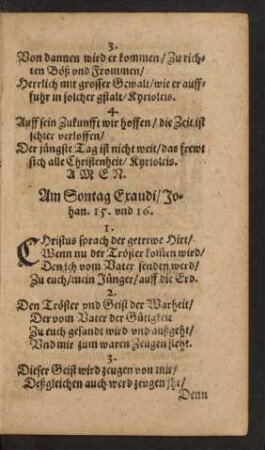 3.
Von dannen wird er kommen/ Zu rich-
ten Böß vnd Frommen/
Herrlich mit grosser Gewalt/ wie er auff-
fuhr in solcher gstalt/ Kyrioleis.
4
Auff sein Zukunfft wir hoffen/ die Zeit ist
schier verloffen/
Der jüngste Tag ist nicht weit/ das frewt
sich alle Christenheit/ Kyrioleis.
A M E N.
Am Sontag Exaudi/ Jo-
han. 15. vnd 16.
1.
CHristus sprach der getrewe Hirt/
Wenn nu der Tröster kommen wird/
Den ich vom Vater senden werd/
Zu euch/ mein Jünger/ auff die Erd.
2.
Den Tröster vnd Geist der Warheit/
Der vom Vater der Gütigkeit
Zu euch gesandt wird vnd außgeht/
Vnd mir zum waren Zeugen steht.
3.
Dieser Geist wird zeugen von mir/
Deßgleichen auch werd zeugen jhr/
Denn